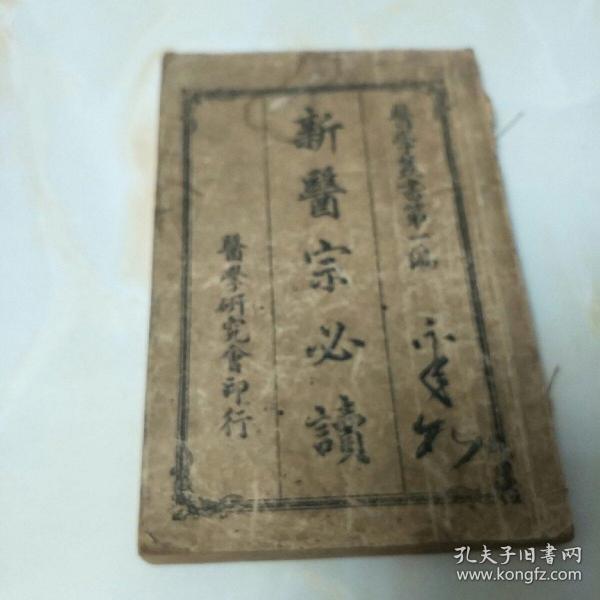 醫學叢書第一編
新醫宗必讀
醫學研究會印行
孔夫子旧书网
www.kongfz.com